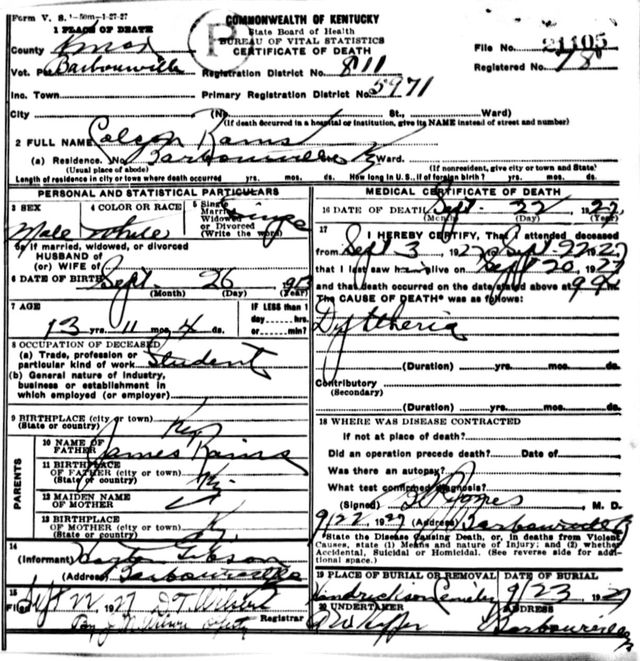 Form V. S. 1-50m-1-27-27
1 PLACE OF DEATH
County Knox
Vot. Pct Barbourville
Inc. Town
City (No. St., Ward)
COMMONWEALTH OF KENTUCKY
State Board of Health
BUREAU OF VITAL STATISTICS
CERTIFICATE OF DEATH
P
Registration District No. 811
Primary Registration District No. 5971
File No. 21105
Registered No. 78
(If death occurred in a hospital or institution, give its NAME instead of street and number)
2 FULL NAME Colson Rains
(a) Residence. No. Barbourville Ky Ward.
(Usual place of abode) (If nonresident, give city or town and State)
Length of residence in city or town where death occurred yrs. mos. ds. How long in U.S., if of foreign birth? yrs. mos. ds.
PERSONAL AND STATISTICAL PARTICULARS
3 SEX Male
4 COLOR OR RACE White
5 Single Married Widowed or Divorced (Write the word) Single
5a If married, widowed, or divorced
HUSBAND OF
(or) WIFE OF
6 DATE OF BIRTH Sept. 26 1913
(Month) (Day) (Year)
7 AGE IF LESS than 1
13 yrs. 11 mos. 4 ds. day, hrs. or min.?
8 OCCUPATION OF DECEASED
(a) Trade, profession or particular kind of work Student
(b) General nature of industry, business or establishment in which employed (or employer)
9 BIRTHPLACE (city or town)
(State or country) Ky
PARENTS
10 NAME OF FATHER James Rains
11 BIRTHPLACE OF FATHER (city or town)
(State or country) Ky
12 MAIDEN NAME OF MOTHER
13 BIRTHPLACE OF MOTHER (city or town)
(State or country) Ky
14
(Informant) Gibson
(Address) Barbourville
15
Filed Sept 22 1927
Registrar
MEDICAL CERTIFICATE OF DEATH
16 DATE OF DEATH Sept. 22 1927
(Month) (Day) (Year)
17 I HEREBY CERTIFY, That I attended deceased
from Sept 3 1927 to Sept 22 1927
that I last saw him alive on Sept 20, 1927
and that death occurred on the date stated above at
The CAUSE OF DEATH* was as follows:
Dyftheria
(Duration) yrs. mos. ds.
Contributory
(Secondary)
(Duration) yrs. mos. ds.
18 WHERE WAS DISEASE CONTRACTED
If not at place of death?
Did an operation precede death? Date of
Was there an autopsy?
What test confirmed diagnosis?
(Signed) Jones M. D.
9/22 1927 (Address) Barbourville
*State the Disease Causing Death, or, in deaths from Violent
Causes, state (1) Means and nature of Injury; and (2) whether
Accidental, Suicidal or Homicidal. (See reverse side for addi-
tional space.)
19 PLACE OF BURIAL OR REMOVAL Hendrickson Cemetery
DATE OF BURIAL 9/23 1927
20 UNDERTAKER
ADDRESS Barbourville